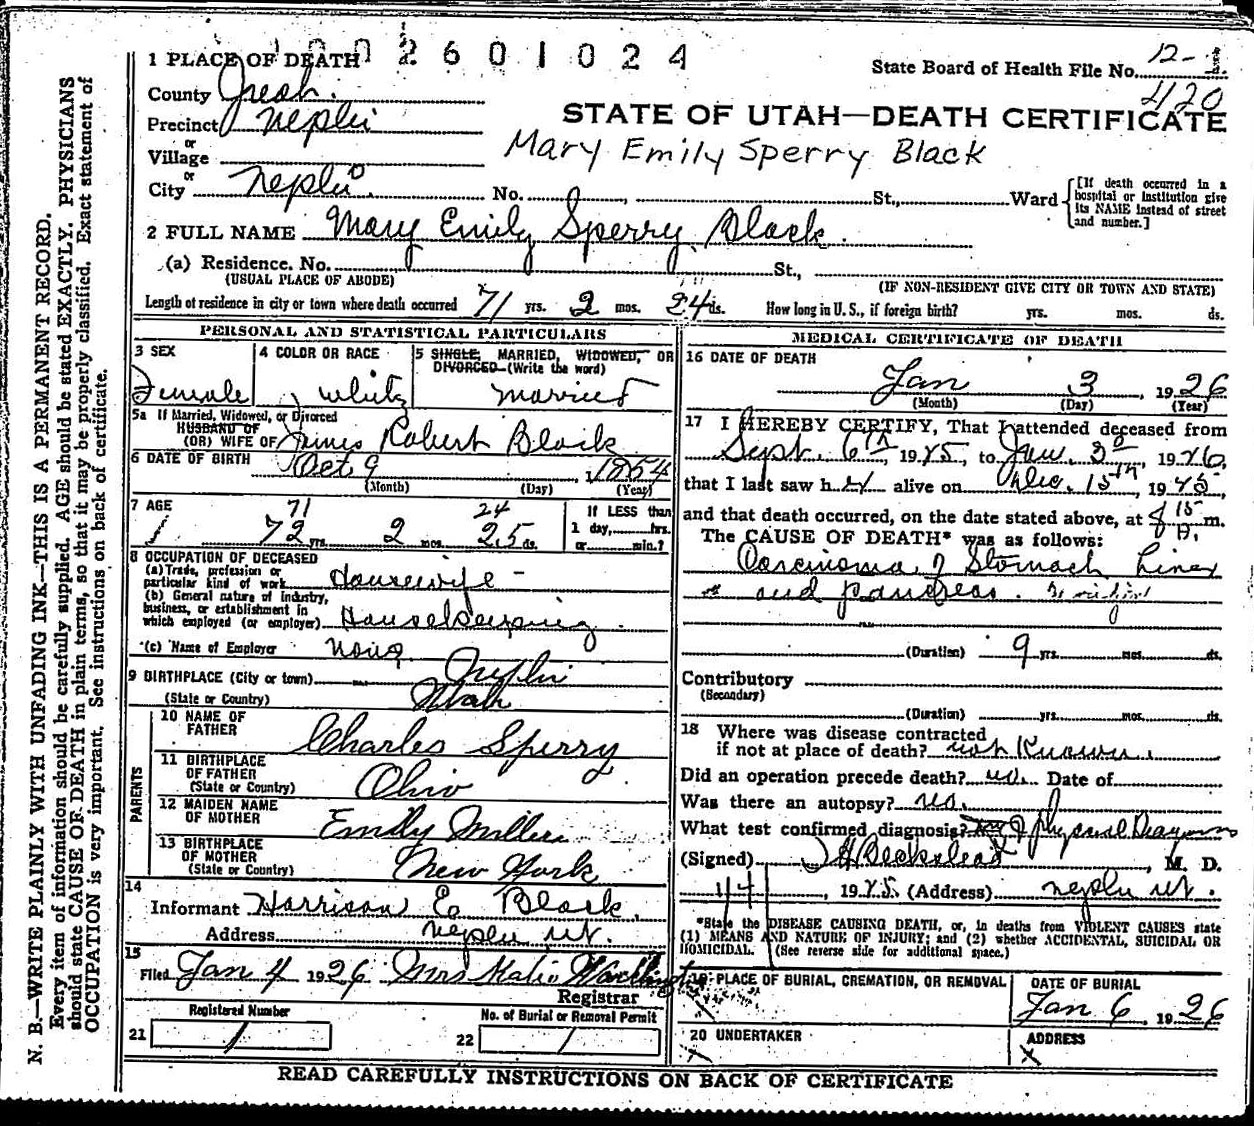 1 PLACE OF DEATH
1002601024
State Board of Health File No. 12-
420
County Juab.
Precinct Nephi
or
Village
or
City Nephi. No. , St., Ward
[If death occurred in a hospital or institution give its NAME instead of street and number.]
STATE OF UTAH—DEATH CERTIFICATE
Mary Emily Sperry Black
2 FULL NAME Mary Emily Sperry Black.
(a) Residence. No. St.,
(USUAL PLACE OF ABODE) (IF NON-RESIDENT GIVE CITY OR TOWN AND STATE)
Length of residence in city or town where death occurred 71 yrs. 2 mos. 24 ds. How long in U. S., if foreign birth? yrs. mos. ds.
PERSONAL AND STATISTICAL PARTICULARS
3 SEX
Female
4 COLOR OR RACE
White
5 SINGLE, MARRIED, WIDOWED, OR DIVORCED (Write the word)
Married
5a If Married, Widowed, or Divorced
HUSBAND OF
(OR) WIFE OF James Robert Black
6 DATE OF BIRTH Oct 9, 1854
(Month) (Day) (Year)
7 AGE 71 24
72 yrs. 2 mos. 25 ds.
If LESS than
1 day, hrs.
or min.?
8 OCCUPATION OF DECEASED
(a) Trade, profession or
particular kind of work Housewife
(b) General nature of industry,
business, or establishment in
which employed (or employer) Housekeeping
(c) Name of Employer None
9 BIRTHPLACE (City or town) Nephi
(State or Country) Utah
PARENTS
10 NAME OF
FATHER Charles Sperry
11 BIRTHPLACE
OF FATHER
(State or Country) Ohio
12 MAIDEN NAME
OF MOTHER Emily Miller
13 BIRTHPLACE
OF MOTHER
(State or Country) New York
14
Informant Harrison E. Black
Address Nephi Ut.
15
Filed Jan 4 1926 Mrs
Registrar
Registered Number
21 1
No. of Burial or Removal Permit
22 1
MEDICAL CERTIFICATE OF DEATH
16 DATE OF DEATH
Jan 3, 1926
(Month) (Day) (Year)
17 I HEREBY CERTIFY, That I attended deceased from
Sept. 6th, 1925, to Jan. 3d, 1926,
that I last saw her alive on Dec. 15th, 1925,
and that death occurred, on the date stated above, at 8 15 A. m.
The CAUSE OF DEATH* was as follows:
Carcinoma of Stomach Liver
and pancreas.
(Duration) 9 yrs. mos. ds.
Contributory
(Secondary)
(Duration) yrs. mos. ds.
18 Where was disease contracted
if not at place of death? not Known.
Did an operation precede death? no. Date of
Was there an autopsy? no.
What test confirmed diagnosis? physical
(Signed) J H Beckstead, M. D.
1/4, 1925 (Address) Nephi Ut.
*State the DISEASE CAUSING DEATH, or, in deaths from VIOLENT CAUSES state
(1) MEANS AND NATURE OF INJURY; and (2) whether ACCIDENTAL, SUICIDAL OR
HOMICIDAL. (See reverse side for additional space.)
19 PLACE OF BURIAL, CREMATION, OR REMOVAL
DATE OF BURIAL
Jan 6, 1926
20 UNDERTAKER
ADDRESS
READ CAREFULLY INSTRUCTIONS ON BACK OF CERTIFICATE
N. B.—WRITE PLAINLY WITH UNFADING INK—THIS IS A PERMANENT RECORD.
Every item of information should be carefully supplied. AGE should be stated EXACTLY. PHYSICIANS
should state CAUSE OF DEATH in plain terms, so that it may be properly classified. Exact statement of
OCCUPATION is very important. See instructions on back of certificate.